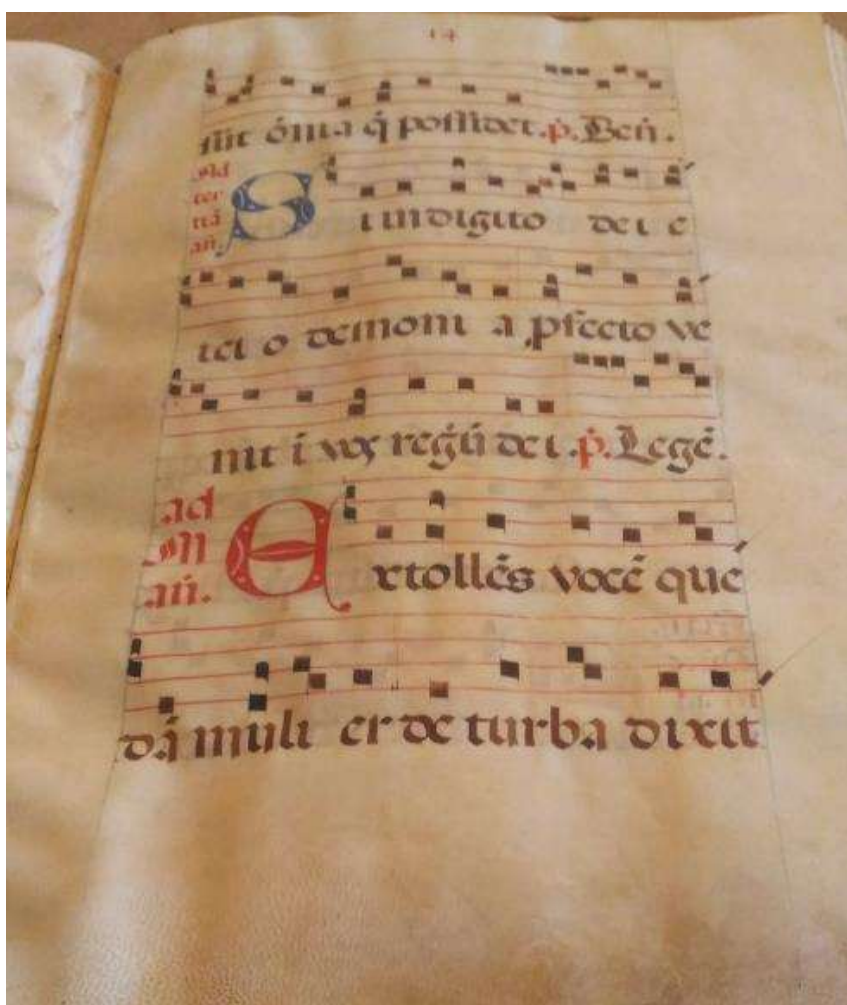 14
sūt oīa q̄ possidet. p̄. Ben̄.
Ad
ter
tiā
an̄.
Si in digito dei e
icio demoni a ꝓfecto ve
nit ī vos regnū dei. p̄. Lege.
ad
M
an̄.
Extollēs vocē que
dā mulier de turba dixit